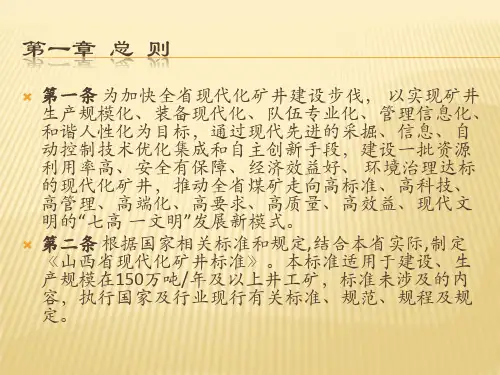 第一章 总 则
第一条 为加快全省现代化矿井建设步伐， 以实现矿井
生产规模化、装备现代化、队伍专业化、管理信息化、
和谐人性化为目标，通过现代先进的采掘、信息、自
动控制技术优化集成和自主创新手段，建设一批资源
利用率高、安全有保障、经济效益好、 环境治理达标
的现代化矿井，推动全省煤矿走向高标准、高科技、
高管理、高端化、高要求、高质量、高效益、现代文
明的“七高 一文明”发展新模式。
第二条 根据国家相关标准和规定,结合本省实际,制定
《山西省现代化矿井标准》。本标准适用于建设、生
产规模在150万吨/年及以上井工矿，标准未涉及的内
容，执行国家及行业现行有关标准、规范、规程及规
定。